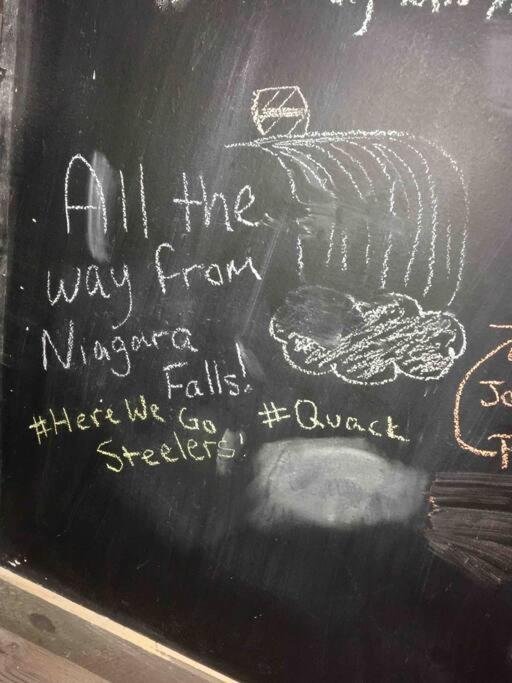 All the
way from
Niagara
Falls!
#Here We Go
Steelers!
#Quack